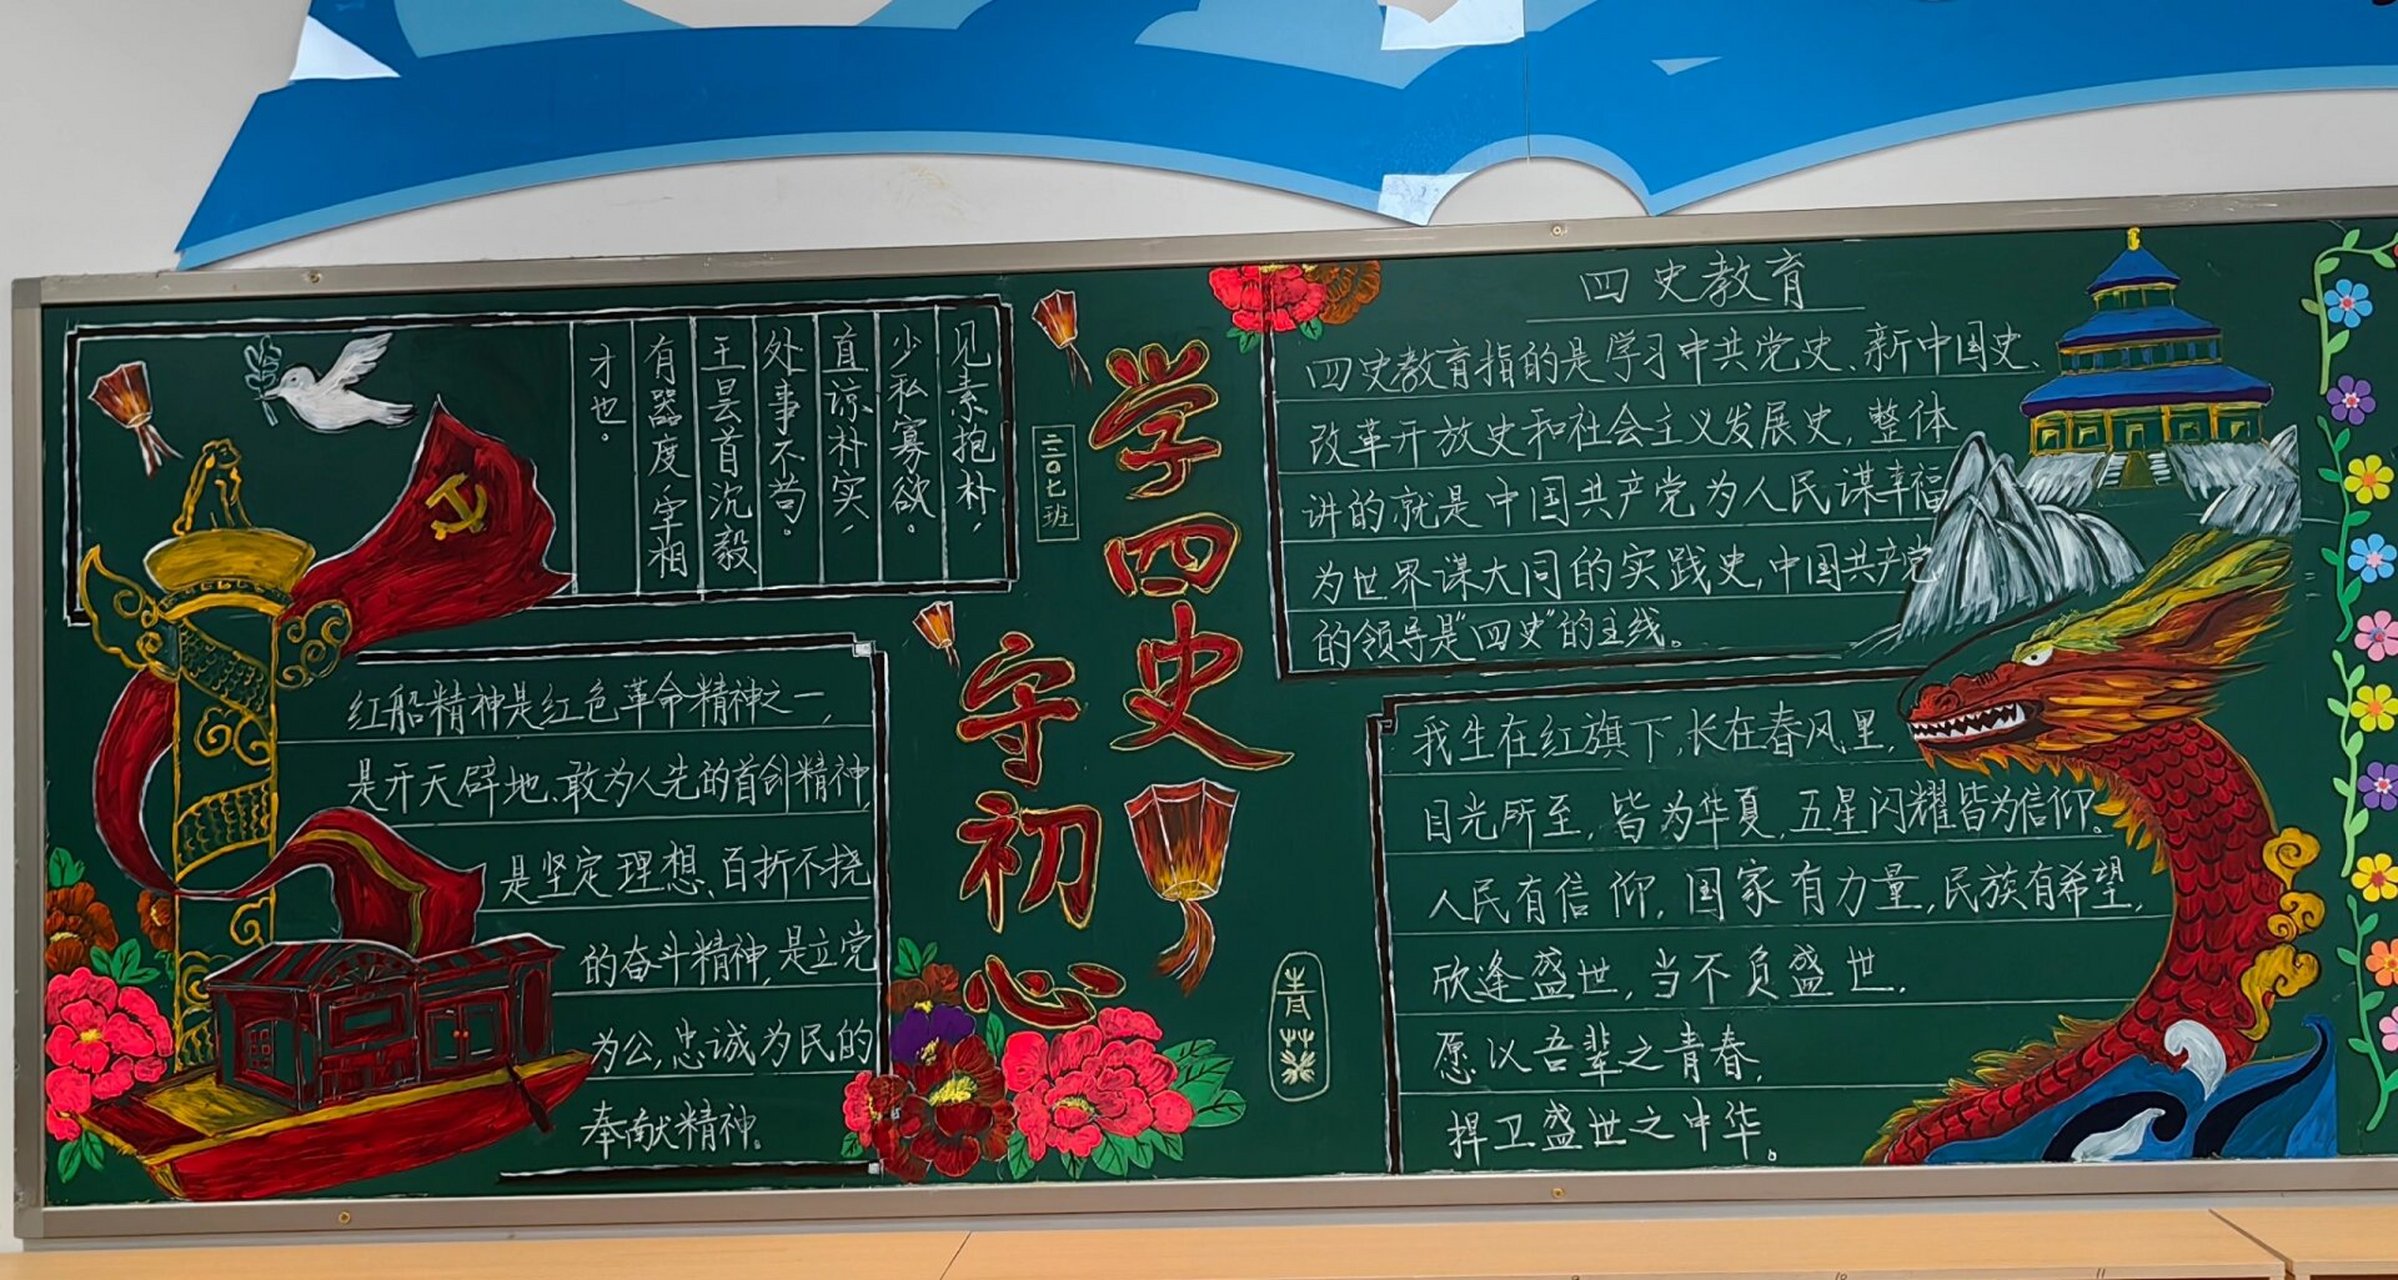 见素抱朴，
少私寡欲。
直谅朴实，
处事不苟。
王昙首沉毅
有器度，宰相
才也。
二三〇七班
学四史
守初心
红船精神是红色革命精神之一，
是开天辟地、敢为人先的首创精神，
是坚定理想、百折不挠
的奋斗精神，是立党
为公，忠诚为民的
奉献精神。
四史教育
四史教育指的是学习中共党史、新中国史、
改革开放史和社会主义发展史，整体
讲的就是中国共产党为人民谋幸福
为世界谋大同的实践史，中国共产党
的领导是“四史”的主线。
我生在红旗下，长在春风里，
目光所至，皆为华夏，五星闪耀皆为信仰。
人民有信仰，国家有力量，民族有希望，
欣逢盛世，当不负盛世．
愿以吾辈之青春，
捍卫盛世之中华。